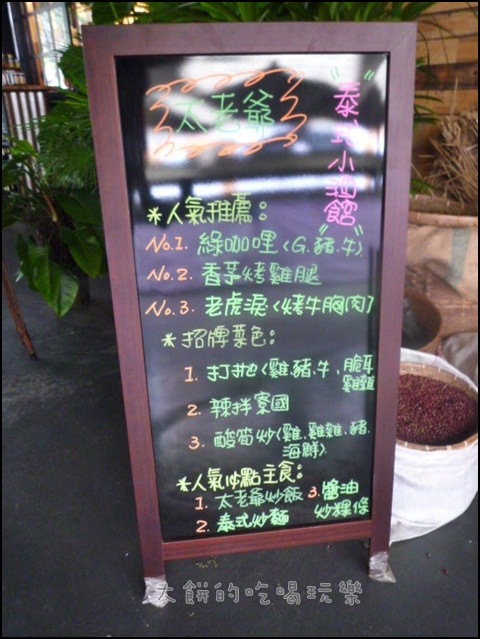 太老爺
"泰式小酒館"
*人氣推薦:
No.1. 綠咖哩(G.豬.牛)
No.2. 香茅烤雞腿
No.3. 老虎淚(烤牛胸肉)
*招牌菜色:
1. 打拋(雞.豬.牛、脆耳
雞雜
2. 辣拌寮國
3. 酸筍炒(雞.雞雜.豬.
海鮮)
*人氣必點主食:
1. 太老爺炒飯
2. 泰式炒麵
3. 醬油
炒粿條
大餅的吃喝玩樂